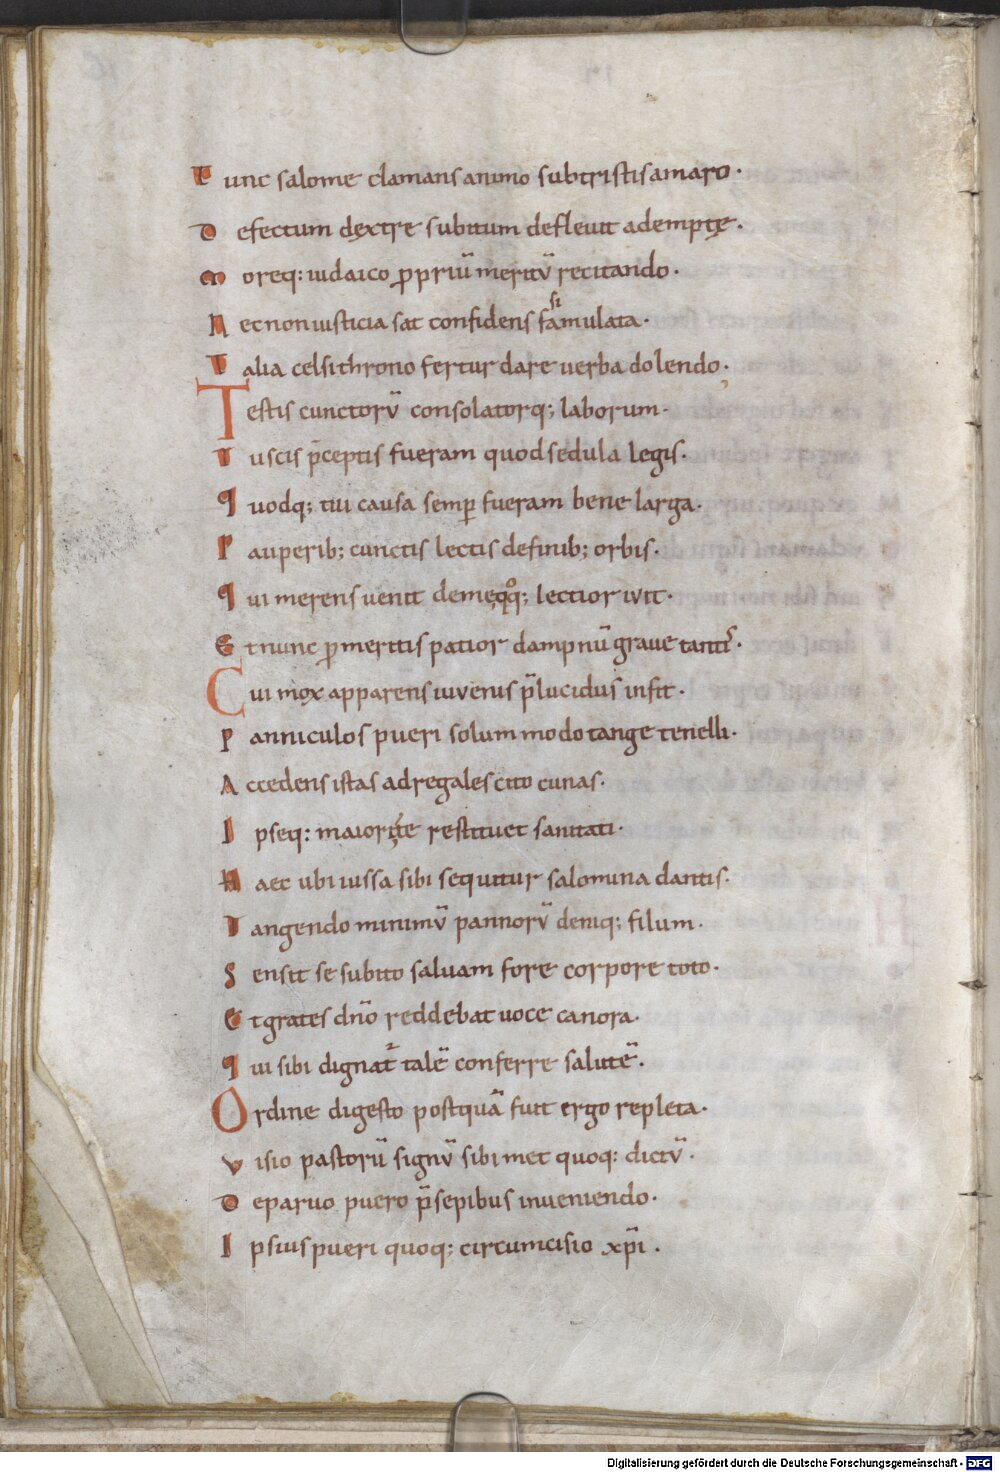 Tunc salome clamans animo subtristis amaro·
Defectum dextre subitum defleuit ademptę·
Moreq: iudaico ꝓpriū meritū recitando·
Nec non iusticia sat confidens famulata· si
Talia celsithrono fertur dare uerba dolendo·
Testis cunctorū consolatorq; laborum·
Tuscis p̄ceptis fueram quod sedula legis·
Quodq; tui causa semp̱ fueram bene larga·
Pauperib; cunctis lectis de finib; orbis·
Qui merens uenit de me quoq; lectior iuit·
Et nunc ꝑ meritis patior dampnū graue tanti·
Cui mox apparens iuvenis p̄lucidus infit·
Panniculos pueri solummodo tange tenelli·
Accedens istas ad regales cito cunas·
Ipseq: maiorę te restituet sanitati·
Haec ubi iussa sibi sequitur salomina dantis·
Tangendo minimū pannorū deniq; filum·
Sensit se subito saluam fore corpore toto·
Et grates dño reddebat uoce canora·
Qui sibi dignat̄ talē conferre salutē·
Ordine digesto postquā fuit ergo repleta·
Visio pastorū signū sibimet quoq: dictū·
De paruo puero p̄sepibus inueniendo·
Ipsius pueri quoq; circumcisio xp̄i·
Digitalisierung gefördert durch die Deutsche Forschungsgemeinschaft - DFG